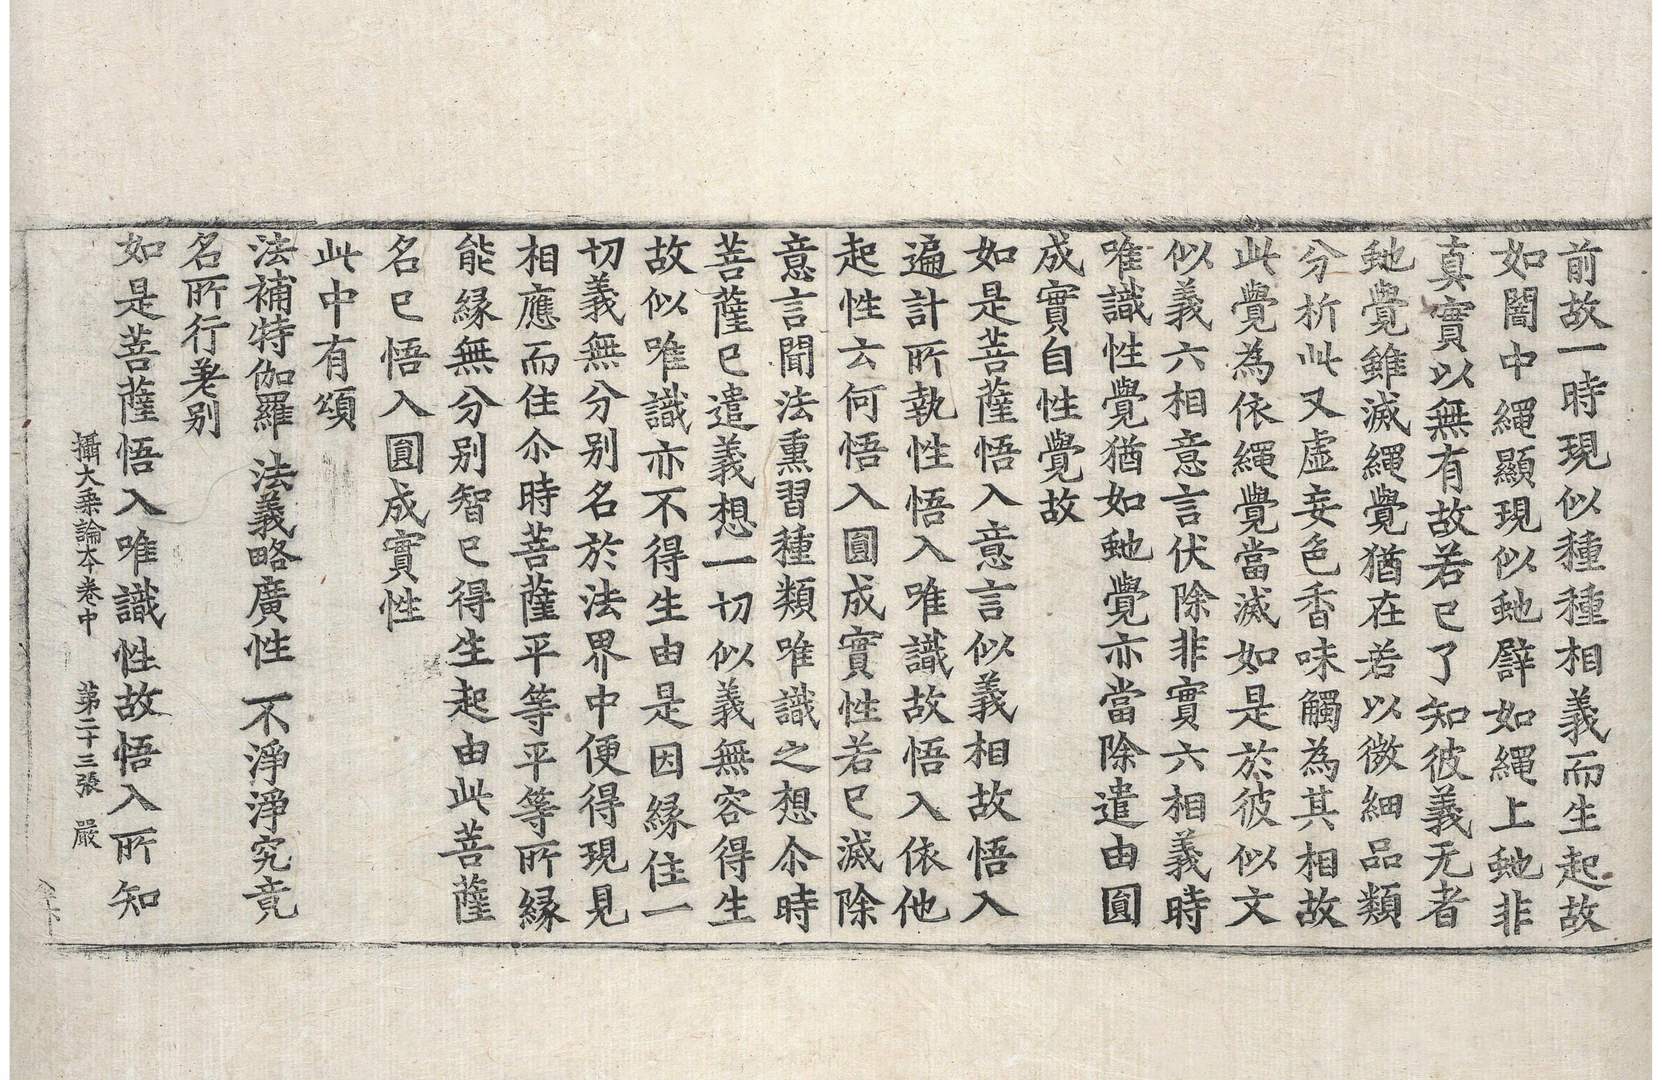 前故一時現似種種相義而生起故
如闇中繩顯現似虵譬如繩上虵非
真實以無有故若已了知彼義无者
虵覺雖滅繩覺猶在若以微細品類
分析此又虛妄色香味觸為其相故
此覺為依繩覺當滅如是於彼似文
似義六相意言伏除非實六相義時
唯識性覺猶如虵覺亦當除遣由圓
成實自性覺故
如是菩薩悟入意言似義相故悟入
遍計所執性悟入唯識故悟入依他
起性云何悟入圓成實性若已滅除
意言聞法熏習種類唯識之想尒時
菩薩已遣義想一切似義無容得生
故似唯識亦不得生由是因緣住一
切義無分別名於法界中便得現見
相應而住尒時菩薩平等平等所緣
能緣無分別智已得生起由此菩薩
名已悟入圓成實性
此中有頌
法補特伽羅 法義略廣性 不淨淨究竟
名所行差別
如是菩薩悟入唯識性故悟入所知
攝大乘論本卷中 第二十三張 嚴